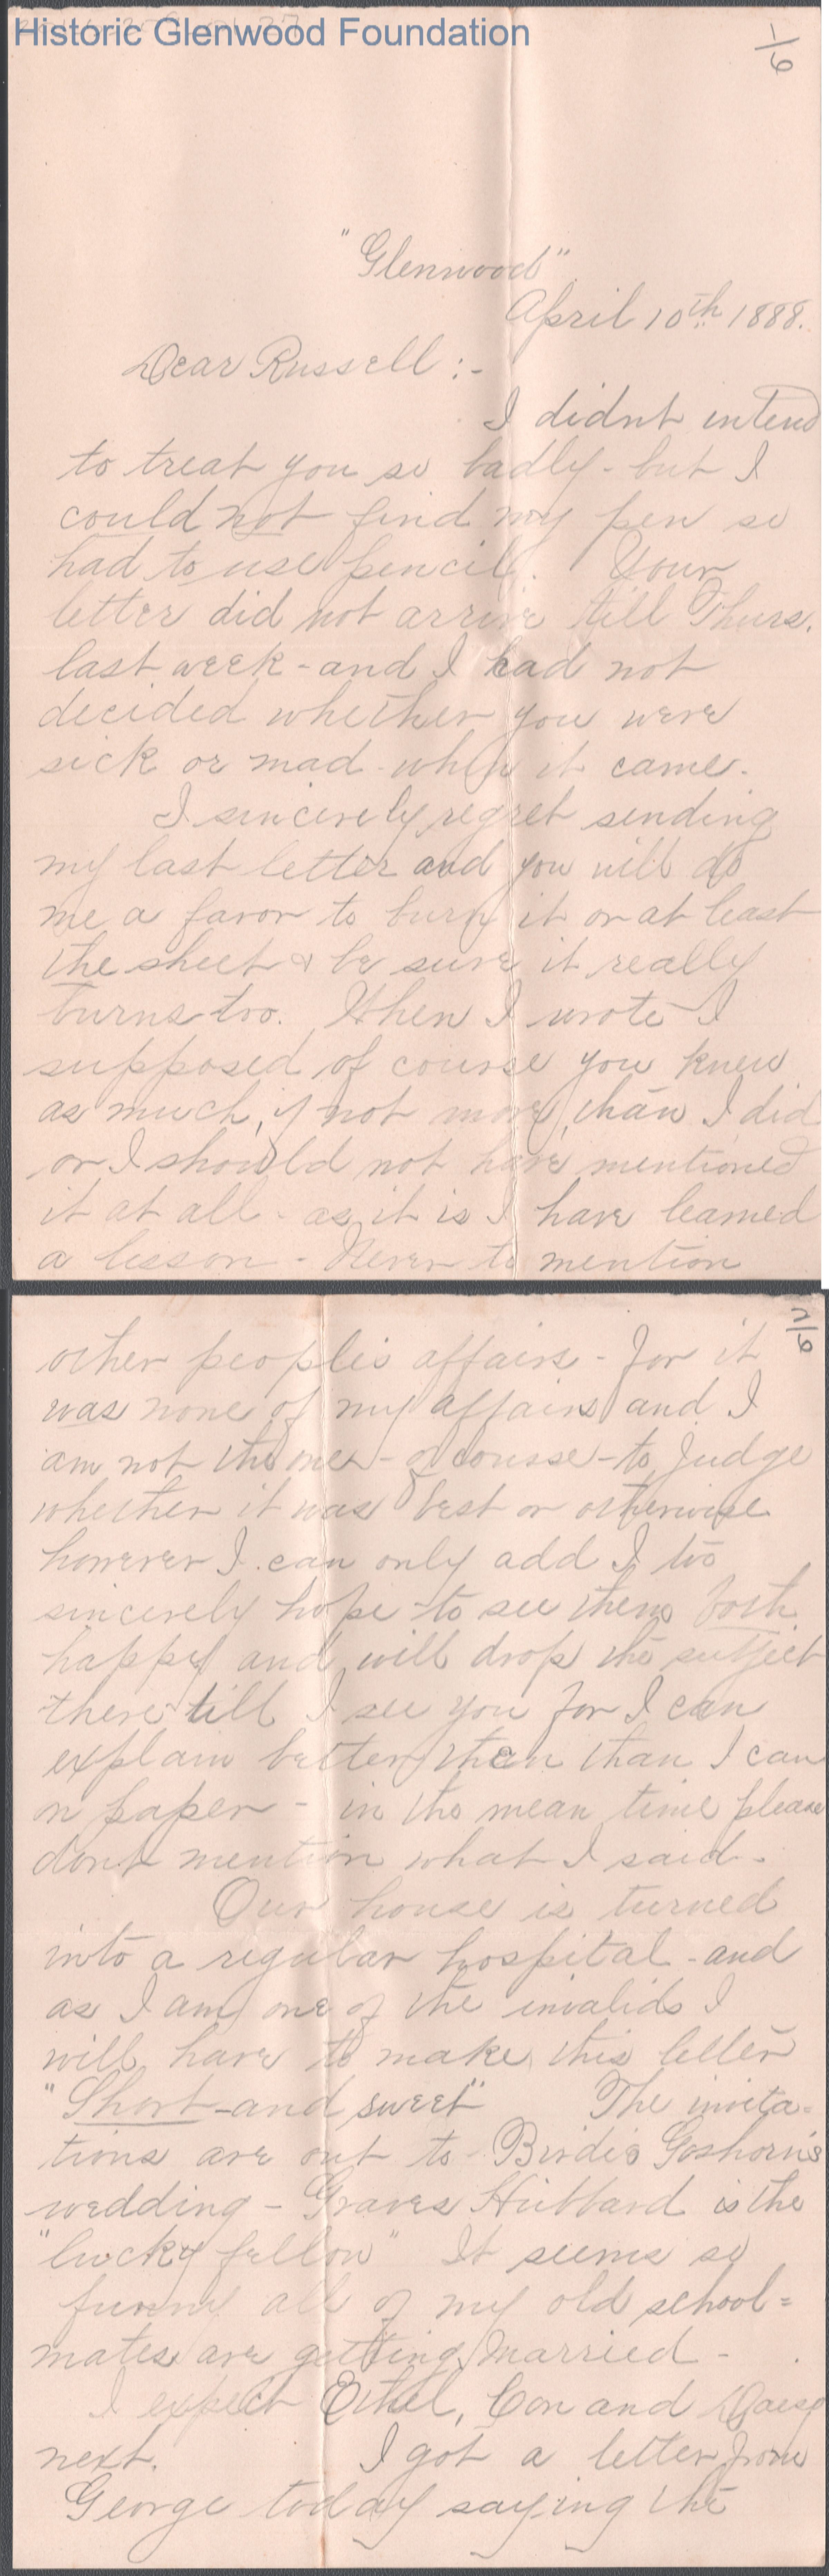 Historic Glenwood Foundation
1/6
"Glenwood"
April 10th 1888.
Dear Russell :-
I didnt intend
to treat you so badly - but I
could not find my pen so
had to use pencil. Your
letter did not arrive till Thurs.
last week - and I had not
decided whether you were
sick or mad when it came.
I sincerely regret sending
my last letter and you will do
me a favor to burn it or at least
the sheet & be sure it really
burns too. When I wrote I
supposed of course you knew
as much, if not more, than I did
or I should not have mentioned
it at all - as it is I have learned
a lesson - Never to mention
2/6
other people's affairs - for it
was none of my affairs and I
am not the one - of course - to Judge
whether it was best or otherwise
however I can only add I too
sincerely hope to see them both
happy and will drop the subject
there till I see you for I can
explain better then than I can
on paper - in the mean time please
dont mention what I said -
Our house is turned
into a regular hospital - and
as I am one of the invalids I
will have to make this letter
"Short - and sweet" The invita=
tions are out to Birdie Goshorn's
wedding - Graves Hubbard is the
"lucky fellow" It seems so
funny all of my old school=
mates are getting married -
I expect Ethel, Con and Daisy
next. I got a letter from
George today saying the